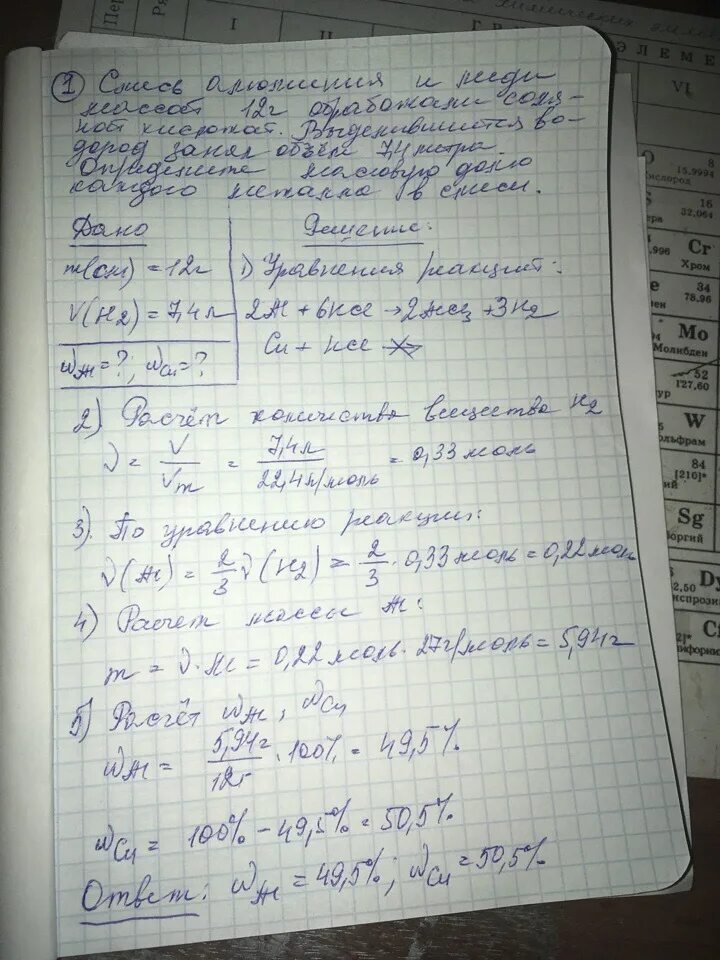 химических элем
Период
Ря
I
II
Г Р
ЭЛЕМЕ
VI
① Смесь алюминия и меди
массой 12г обработали соля-
ной кислотой. Выделившийся во-
дород занял объём 7,4 литра.
Определите массовую долю
каждого металла в смеси.
Дано
Решение:
m(см) = 12г
V(H2) = 7,4 л
WAl = ?; WCu = ?
1) Уравнения реакций:
2Al + 6HCl → 2AlCl3 + 3H2
Cu + HCl ↛
2) Расчёт количества вещества H2
ν = V/Vm = 7,4л/22,4л/моль = 0,33 моль
3). По уравнению реакции:
ν(Al) = 2/3 ν(H2) = 2/3 · 0,33 моль = 0,22 моль
4) Расчет массы Al:
m = ν·M = 0,22 моль · 27г/моль = 5,94г
5) Расчёт WAl; WCu
WAl = 5,94г/12г · 100% = 49,5%
WCu = 100% - 49,5% = 50,5%
Ответ: WAl = 49,5%; WCu = 50,5%
O 8
15,9994
Кислород
S 16
32,064
ера
Cr
,996
Хром
e 34
78,96
ен
Mo
Молибден
52
127,60
ур
W
ольфрам
84
[210]*
ий
Sg
оргий
Dy
62,50
испрозий
Cf
2]*
ифорний